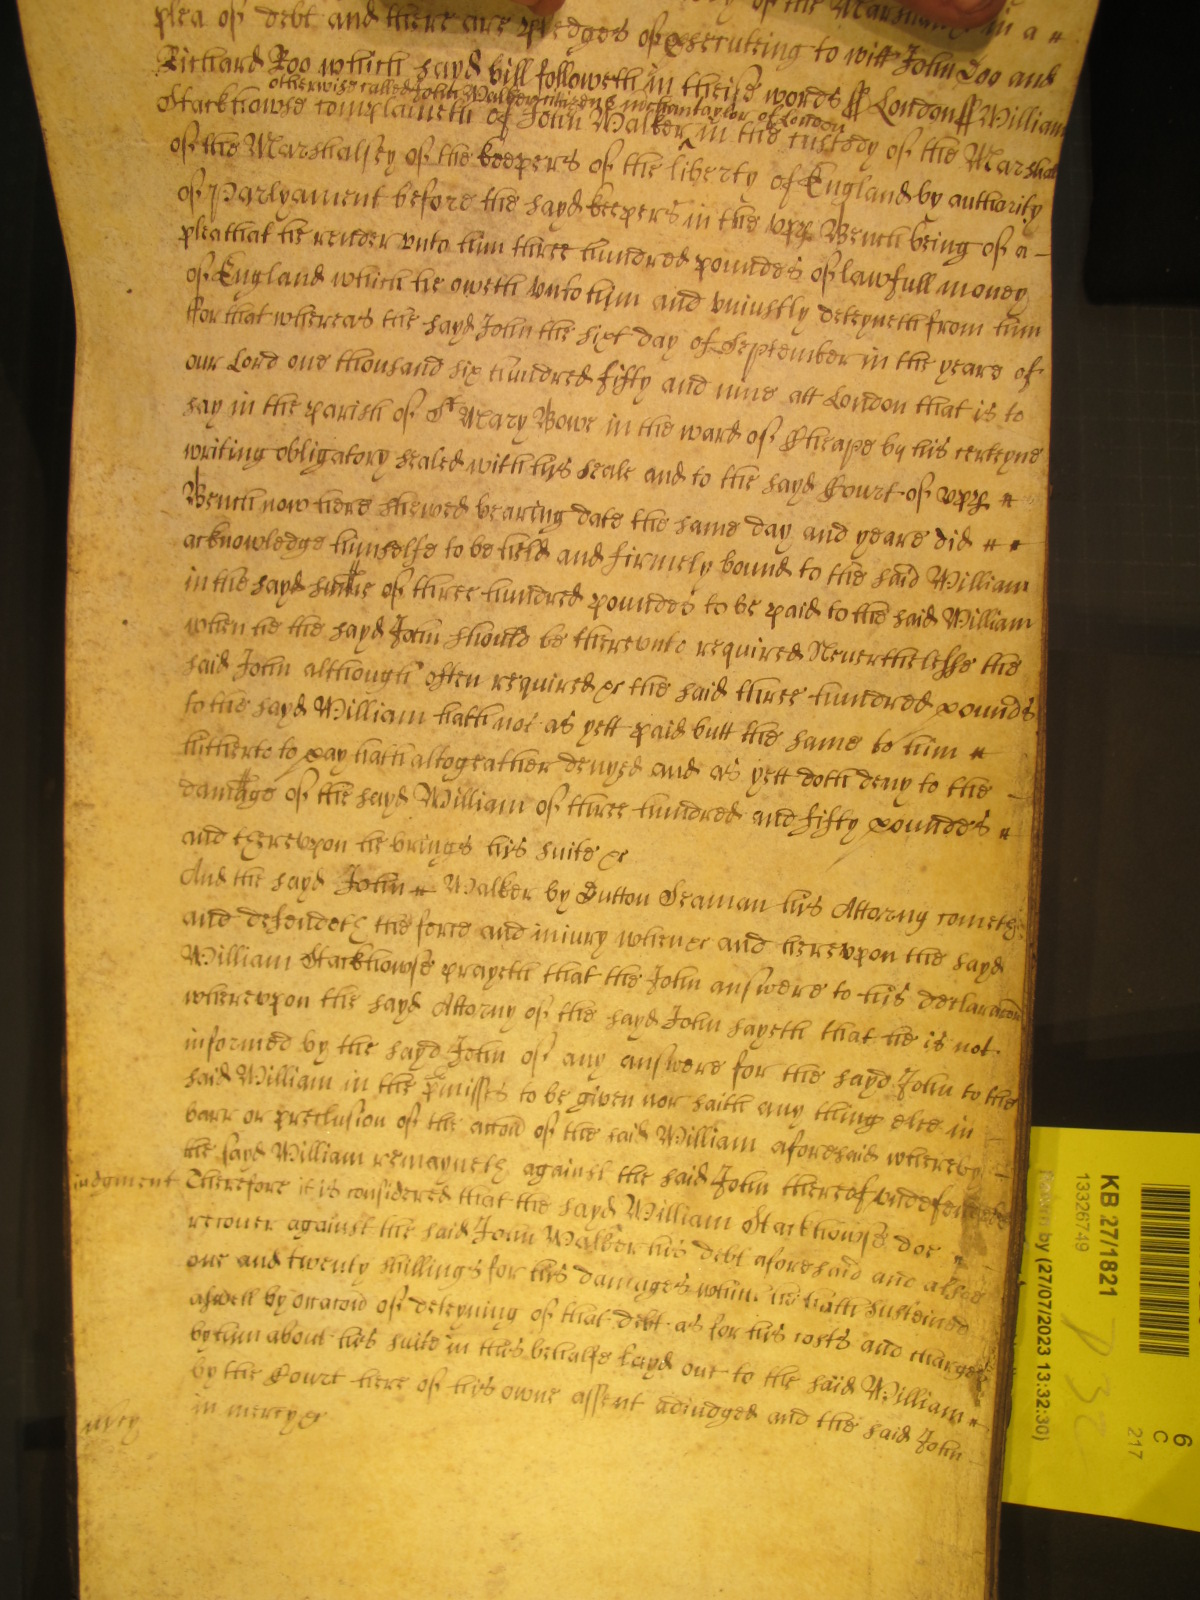 of the Marshalsey in a
plea of debt and there are pledges of prosecuting to witt John Doo and
Richard Roo which sayd bill followeth in theise words ss London ss William
otherwise called John Walker citizen & merchantaylor of London
Stackhowse complaineth of John Walker ^ in the custody of the Marshal
of the Marshalsey of the keepers of the liberty of England by authority
of Parlyament before the sayd keepers in the vpp Bench being of a
plea that he render vnto him three hundred poundes of lawfull money
of England which he oweth vnto him and vniustly deteyneth from him
ffor that whereas the sayd John the sixt day of September in the yeare of
our Lord one thousand six hundred fifty and nine att London that is to
say in the parish of St Mary Bowe in the ward of Cheape by his certeyne
writing obligatory sealed with hys seale and to the sayd Court of vpp
Bench now here shewed bearing date the same day and yeare did
acknowledge himselfe to be held and firmely bound to the said William
in the sayd summe of three hundred poundes to be paid to the said William
when he the sayd John should be therevnto required Neverthelesse the
said John although often required &c the said three hundred pounds
to the sayd William hath not as yett paid butt the same to him
hitherto to pay hath altogeather denyed and as yett doth deny to the
damage of the sayd William of three hundred and fifty poundes
and therevpon he brings hys suite &c
And the sayd John Walker by Dutton Seaman his Attorny cometh
and defendeth the force and iniury when &c and herevpon the sayd
William Stackhowse prayeth that the John answere to his declaracon
wherevpon the sayd Attorny of the sayd John sayeth that he is not
informed by the sayd John of any answere for the sayd John to the
said William in the pmisses to be given nor saith any thing else in
barr or preclusion of the accon of the said William aforesaid whereby
the sayd William remayneth against the said John thereof vndefended
iudgment Therefore it is considered that the sayd William Stackhowse doe
recouer against the said John Walker his debt aforesaid and alsoe
one and twenty shillings for his damages which he hath susteined
aswell by occacon of deteyning of that debt as for his costs and charges
by him about his suite in this behalfe layd out to the said William
by the Court here of hys owne assent adiudged and the said John
mercy in mercy &c
KB 27/1821
13326749
by (27/07/2023 13:32:30)
6
C
217